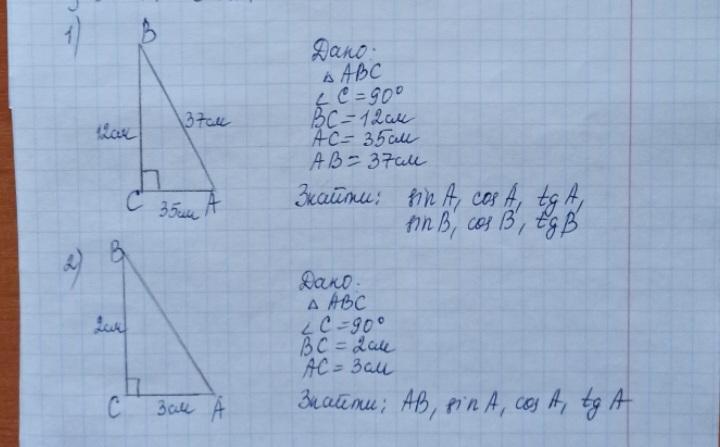 1)
B
12см
37см
C
35см
A
Дано:
△ ABC
∠ C = 90°
BC = 12см
AC = 35см
AB = 37см
Знайти: sin A, cos A, tg A,
sin B, cos B, tg B
2)
B
2см
C
3см
A
Дано:
△ ABC
∠ C = 90°
BC = 2см
AC = 3см
Знайти: AB, sin A, cos A, tg A